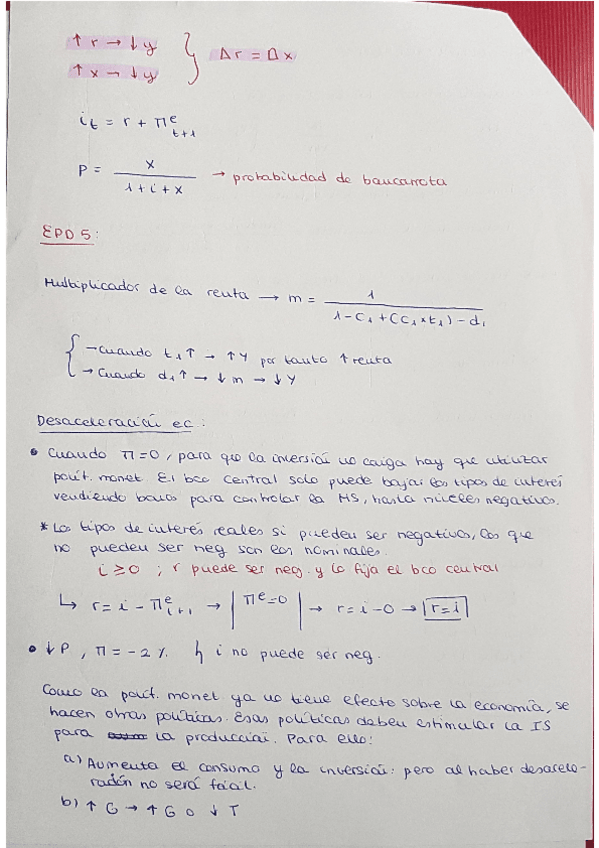 ↑ r → ↓ y
↑ x → ↓ y } Δr = Δx
i_t = r + π^e_{t+1}
P = x / (1 + i + x) → probabilidad de bancarrota
EPD 5:
Multiplicador de la renta → m = 1 / (1 - c₁ + (c₁ * t₁) - d₁)
{ → Cuando t₁ ↑ → ↑ Y por tanto ↑ renta
→ Cuando d₁ ↑ → ↓ m → ↓ Y
Desaceleración ec:
• Cuando π = 0, para que la inversión no caiga hay que utilizar
polít. monet. El bco central solo puede bajar los tipos de interés
vendiendo bonos para controlar la MS, hasta niveles negativos.
* Los tipos de interés reales si pueden ser negativos, los que
no pueden ser neg son los nominales.
i ≥ 0 ; r puede ser neg. y lo fija el bco central
↳ r = i - π^e_{t+1} → | π^e = 0 | → r = i - 0 → r = i
• ↓ P, π = -2 %. i no puede ser neg.
Como la polít. monet ya no tiene efecto sobre la economía, se
hacen otras políticas. Esas políticas deben estimular la IS
para la producción. Para ello:
a) Aumenta el consumo y la inversión: pero al haber desacele-
ración no será fácil.
b) ↑ G → ↑ G o ↓ T